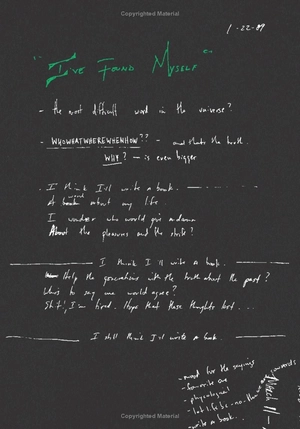 Copyrighted Material
1-22-89
"I've Found Myself"
- the most difficult word in the universe?
- WHOWHATWHEREWHENHOW?? - and thats the truth.
WHY? - is even bigger
- I think I'll write a book.
A word about my life.
I wonder who would give a damn
About the pleasures and the strife?
I think I'll write a book.
Help the generations with the truth about the past?
Who's to say we would agree?
Shit, I'm tired. Hope that these thoughts last...
I still think I'll write a book.
- need for the sayings
- favorite one
- physiological
- let life be
write a book...
March 11
Copyrighted Material